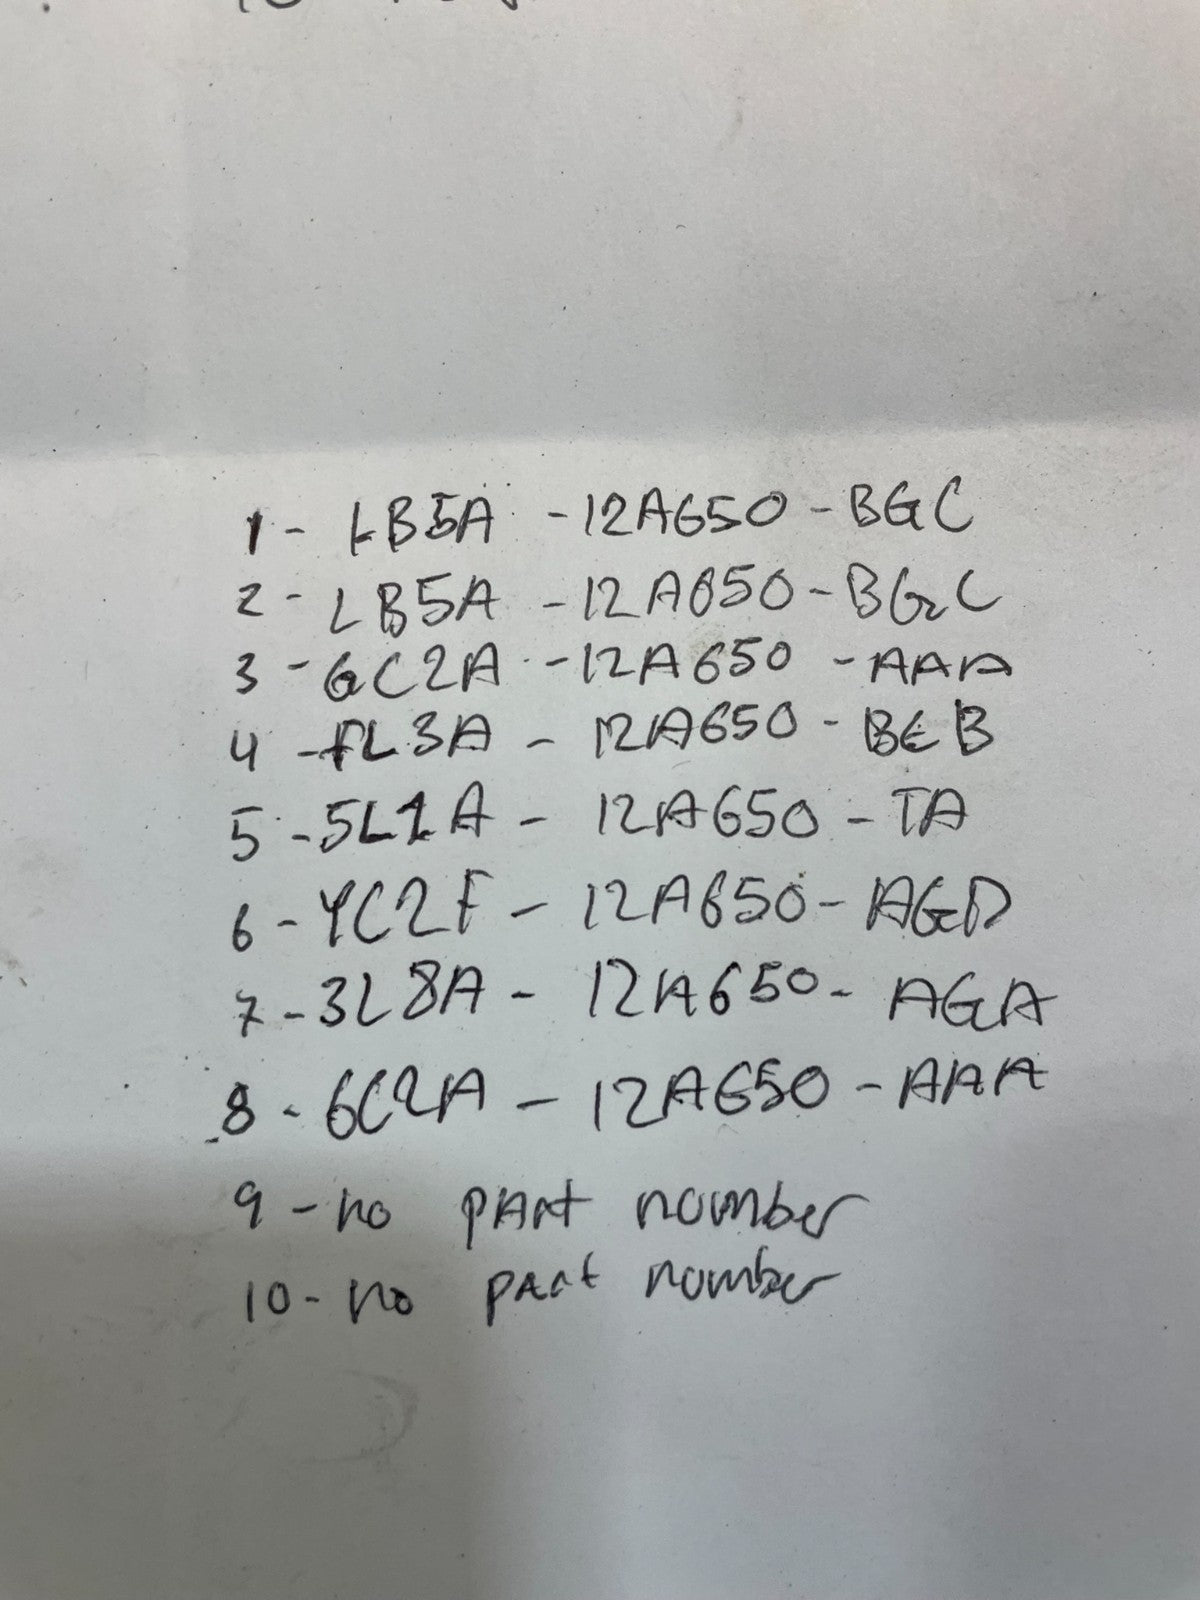 1 - LB5A - 12A650 - BGC
2 - LB5A - 12A650 - BGC
3 - GC2A - 12A650 - AAA
4 - FL3A - 12A650 - BEB
5 - 5L1A - 12A650 - TA
6 - YC2F - 12A650 - AGD
7 - 3L8A - 12A650 - AGA
8 - 6C2A - 12A650 - AAA
9 - no part number
10 - no part number